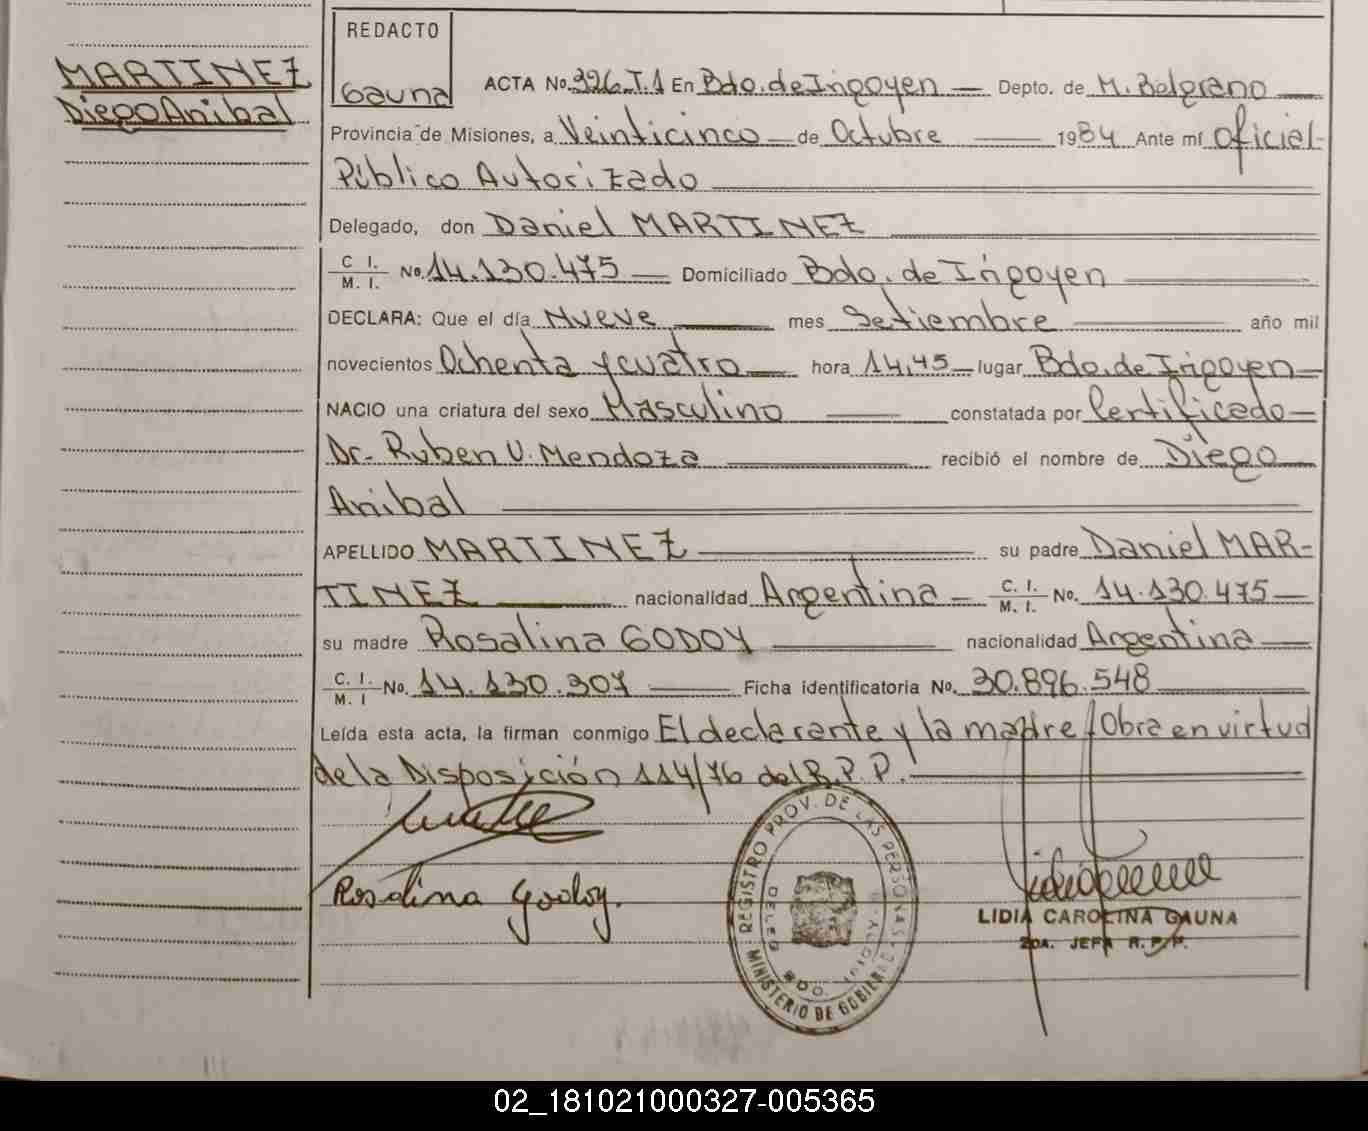 REDACTO
Gauna
MARTINEZ
Diego Anibal
ACTA No. 326 T.1 En Bdo. de Irigoyen Depto. de M. Belgrano
Provincia de Misiones, a Veinticinco de Octubre 1984 Ante mí Oficial
Público Autorizado
Delegado, don Daniel MARTINEZ
C. I. / M. I. No. 14.130.475 Domiciliado Bdo. de Irigoyen
DECLARA: Que el día Nueve mes Setiembre año mil
novecientos Ochenta y cuatro hora 14,45 lugar Bdo. de Irigoyen
NACIO una criatura del sexo Masculino constatada por Certificado
Dr. Ruben V. Mendoza recibió el nombre de Diego
Anibal
APELLIDO MARTINEZ su padre Daniel MAR-
TINEZ nacionalidad Argentina C. I. / M. I. No. 14.130.475
su madre Rosalina GODOY nacionalidad Argentina
C. I. / M. I No. 14.130.307 Ficha identificatoria No. 30.896.548
Leída esta acta, la firman conmigo El declarante y la madre / Obra en virtud
de la Disposición 114/76 del R.P.P.
Rosalina Godoy.
REGISTRO PROV. DE LAS PERSONAS
MINISTERIO DE GOBIERNO
BDO. IRIGOY
LIDIA CAROLINA GAUNA
2DA. JEFA R.P.P.
02_181021000327-005365